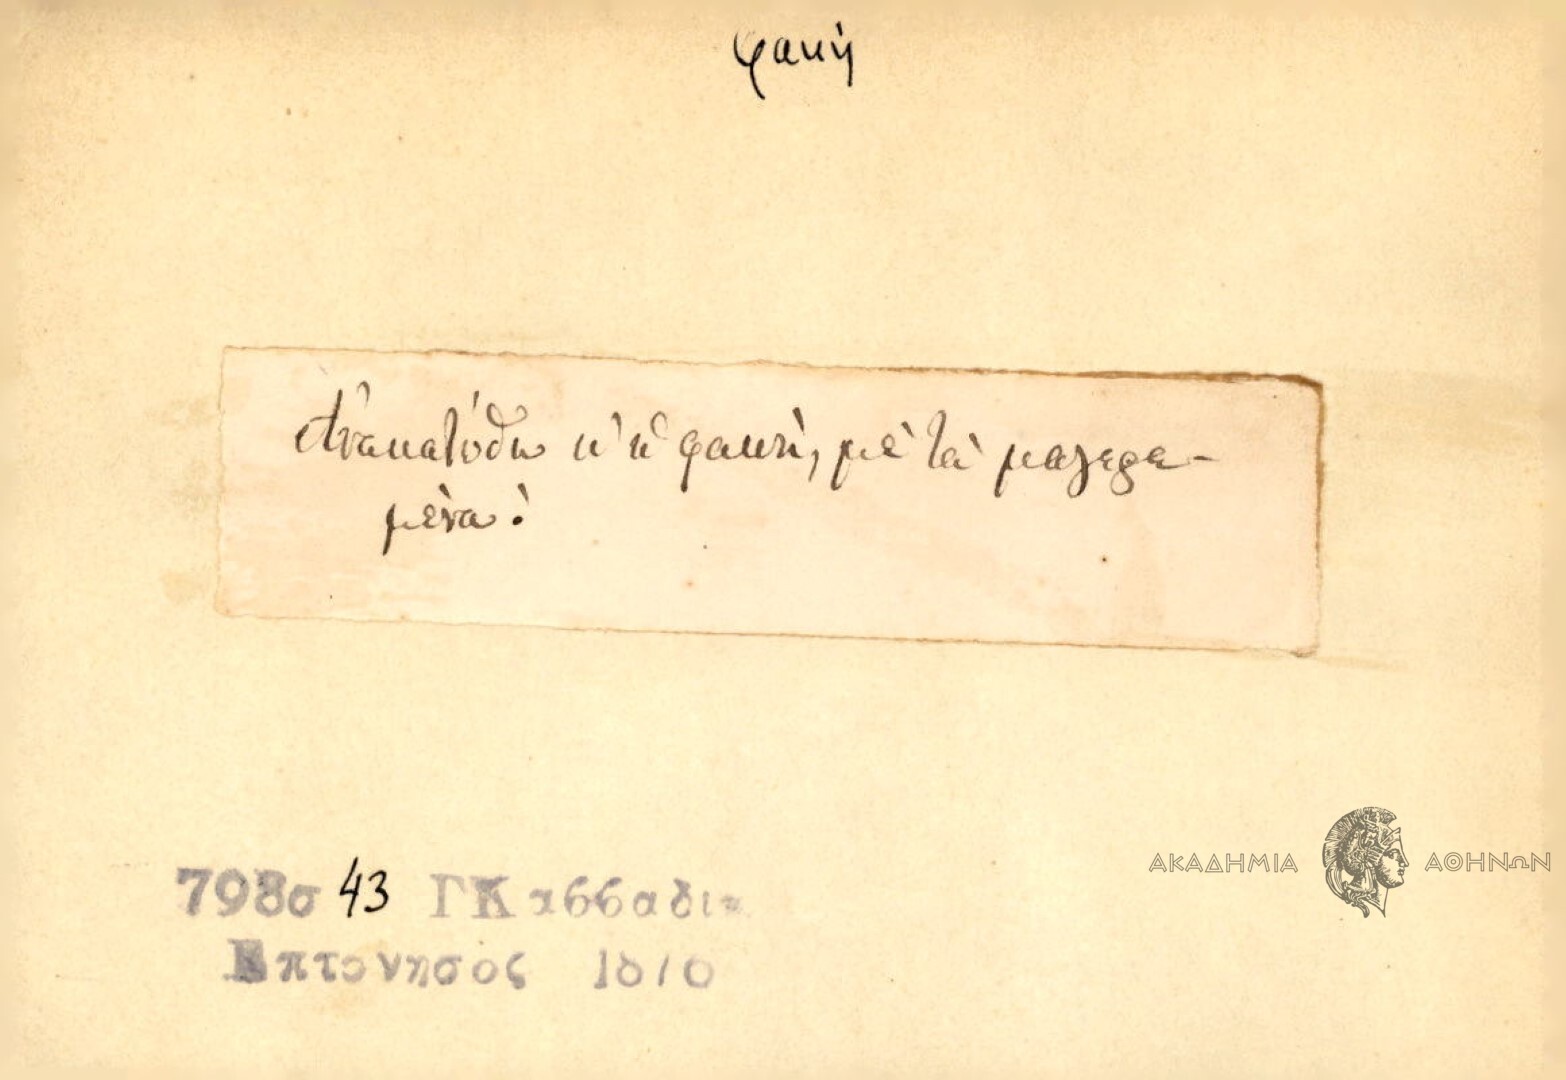 φακή
Ἀνακατώθω κ' ἡ φακὴ, μὲ τὰ μαγερε-
μένα!
798σ 43 ΓΚασσαδι
Επτονησος 1876
ΑΚΑΔΗΜΙΑ ΑΘΗΝΩΝ